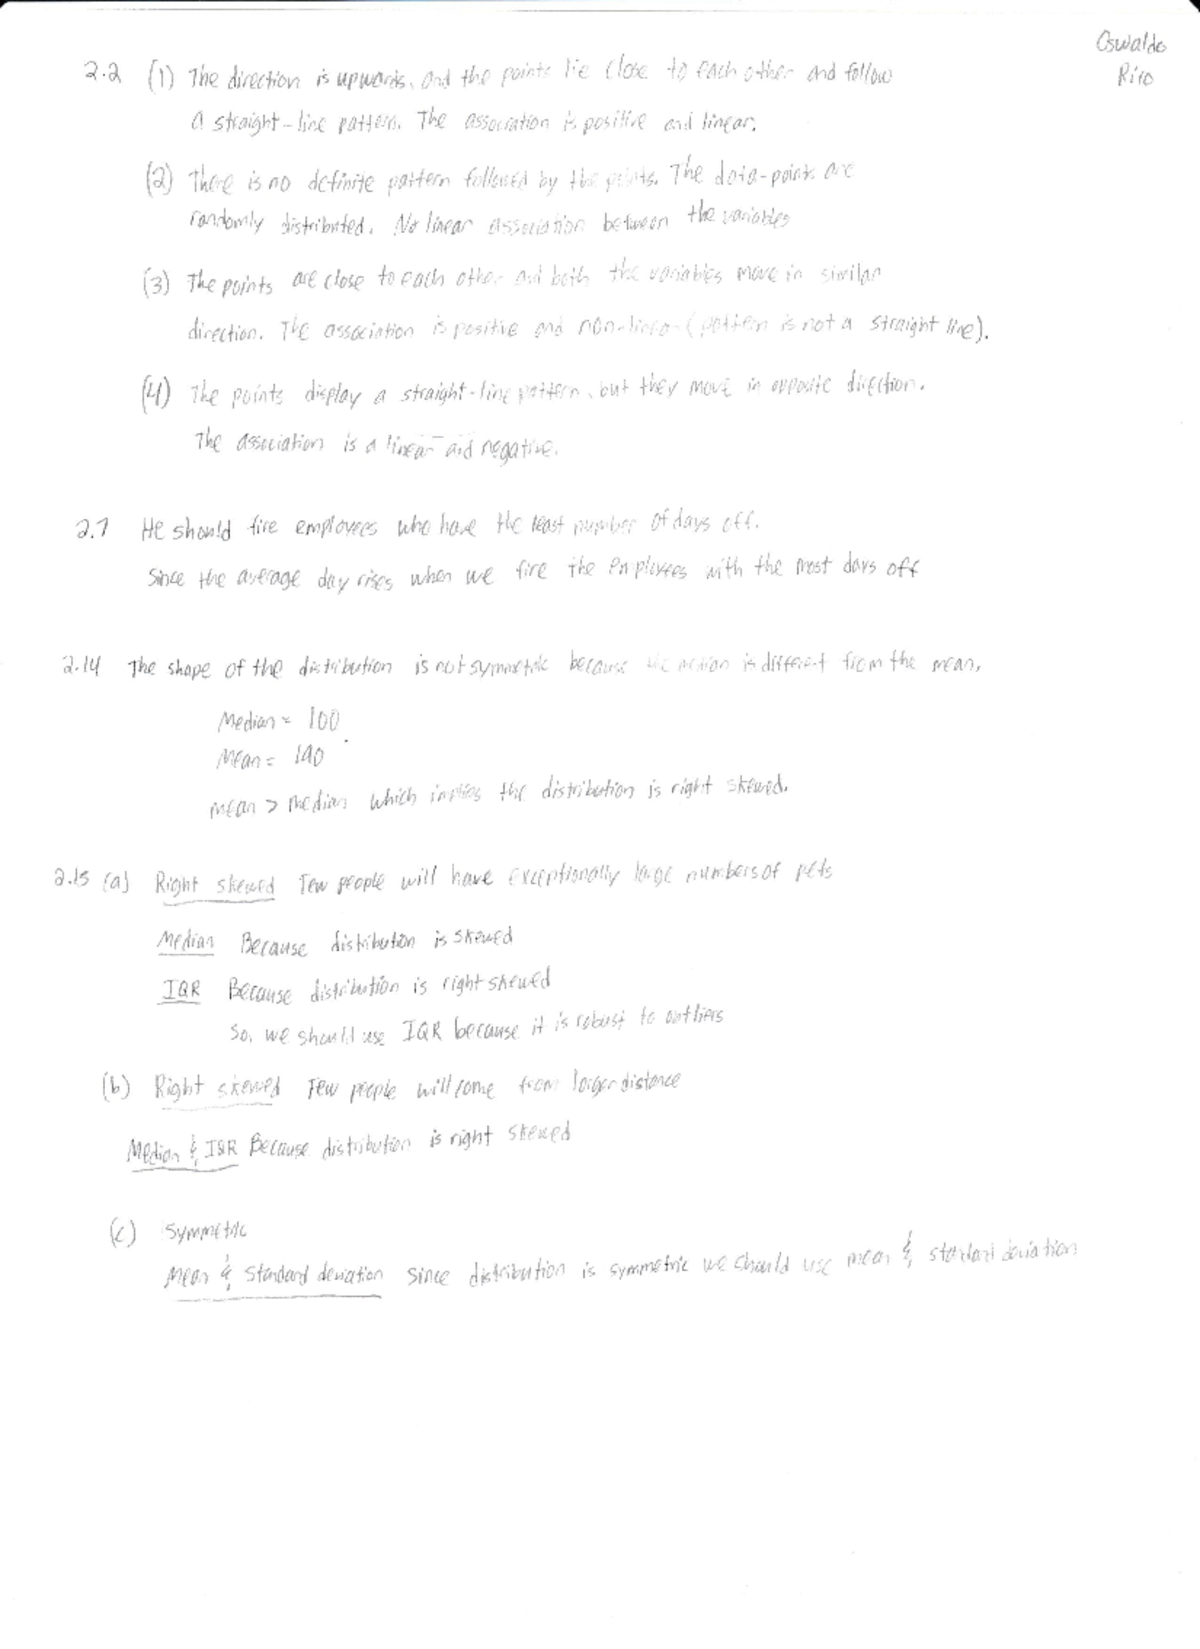 Oswaldo
Rico
2.2 (1) The direction is upwards, and the points lie close to each other and follow
a straight-line pattern. The association is positive and linear.
(2) There is no definite pattern followed by the points. The data-points are
randomly distributed. No linear association between the variables
(3) The points are close to each other and both the variables move in similar
direction. The association is positive and non-linear (pattern is not a straight line).
(4) The points display a straight-line pattern, but they move in opposite direction.
The association is a linear and negative.
2.7 He should fire employees who have the least number of days off.
Since the average day rises when we fire the employees with the most days off
2.14 The shape of the distribution is not symmetric because the median is different from the mean.
Median = 100
Mean = 140
mean > median which implies the distribution is right skewed.
2.15 (a) Right skewed Few people will have exceptionally large numbers of pets
Median Because distribution is skewed
IQR Because distribution is right skewed
So, we should use IQR because it is robust to outliers
(b) Right skewed Few people will come from larger distance
Median & IQR Because distribution is right skewed
(c) Symmetric
Mean & Standard deviation Since distribution is symmetric we should use mean & standard deviation